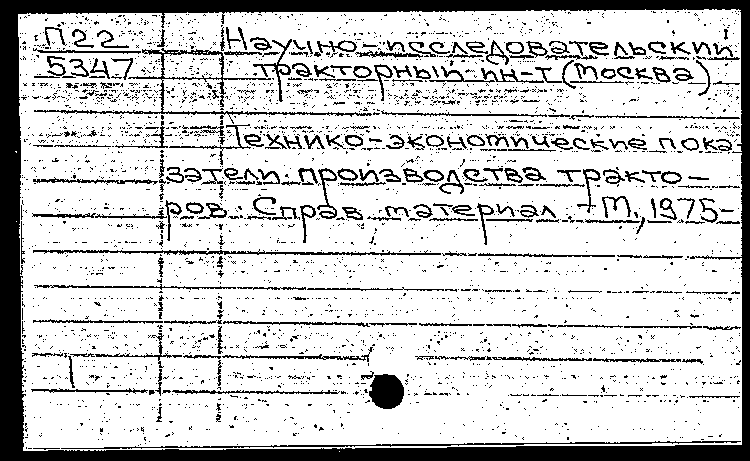 П22 Научно-исследовательский
5347 тракторный ин-т (Москва)
Технико-экономические пока-
затели производства тракто-
ров. Справ. материал. - М., 1975-
1